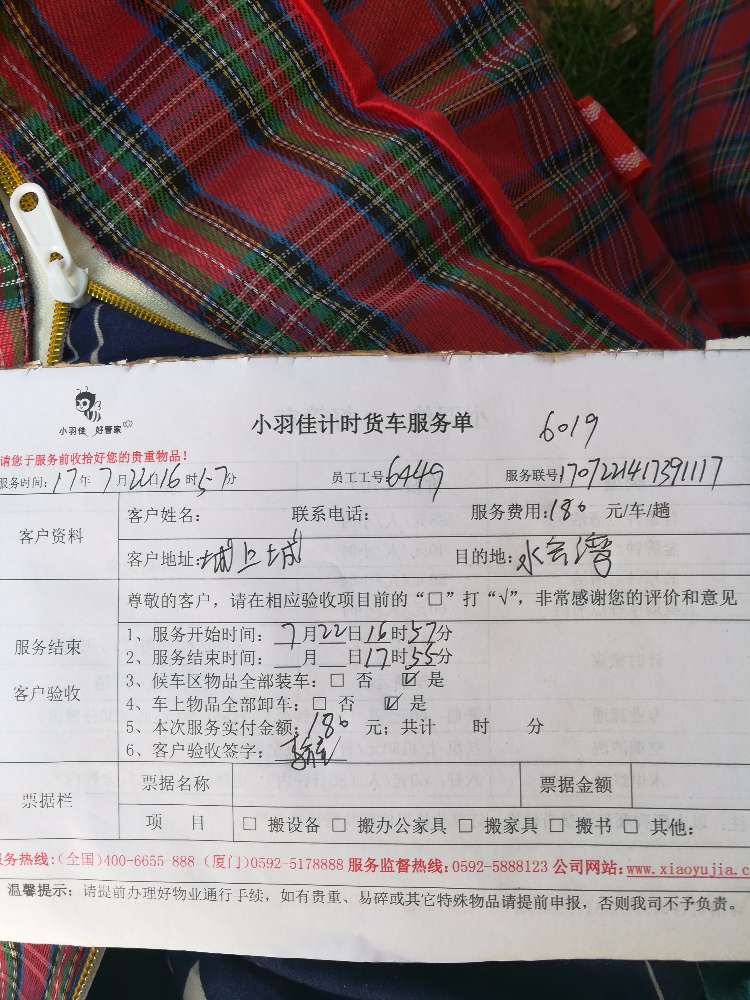 小羽佳 好管家
小羽佳计时货车服务单 6019
请您于服务前收拾好您的贵重物品!
服务时间:17年7月22日16时57分 员工工号:6449 服务联号:1707221417391117
客户资料
客户姓名: 联系电话: 服务费用:180 元/车/趟
客户地址:城上城 目的地:水云湾
服务结束
客户验收
尊敬的客户，请在相应验收项目前的“□”打“√”,非常感谢您的评价和意见
1、服务开始时间:7月22日16时57分
2、服务结束时间:___月___日17时55分
3、候车区物品全部装车:□ 否 ☑ 是
4、车上物品全部卸车:□ 否 ☑ 是
5、本次服务实付金额:180 元;共计 时 分
6、客户验收签字:
票据栏
票据名称 票据金额
项 目 □ 搬设备 □ 搬办公家具 □ 搬家具 □ 搬书 □ 其他:
服务热线:(全国)400-6655 888 (厦门)0592-5178888 服务监督热线:0592-5888123 公司网站:www.xiaoyujia.c
温馨提示: 请提前办理好物业通行手续，如有贵重、易碎或其它特殊物品请提前申报，否则我司不予负责。